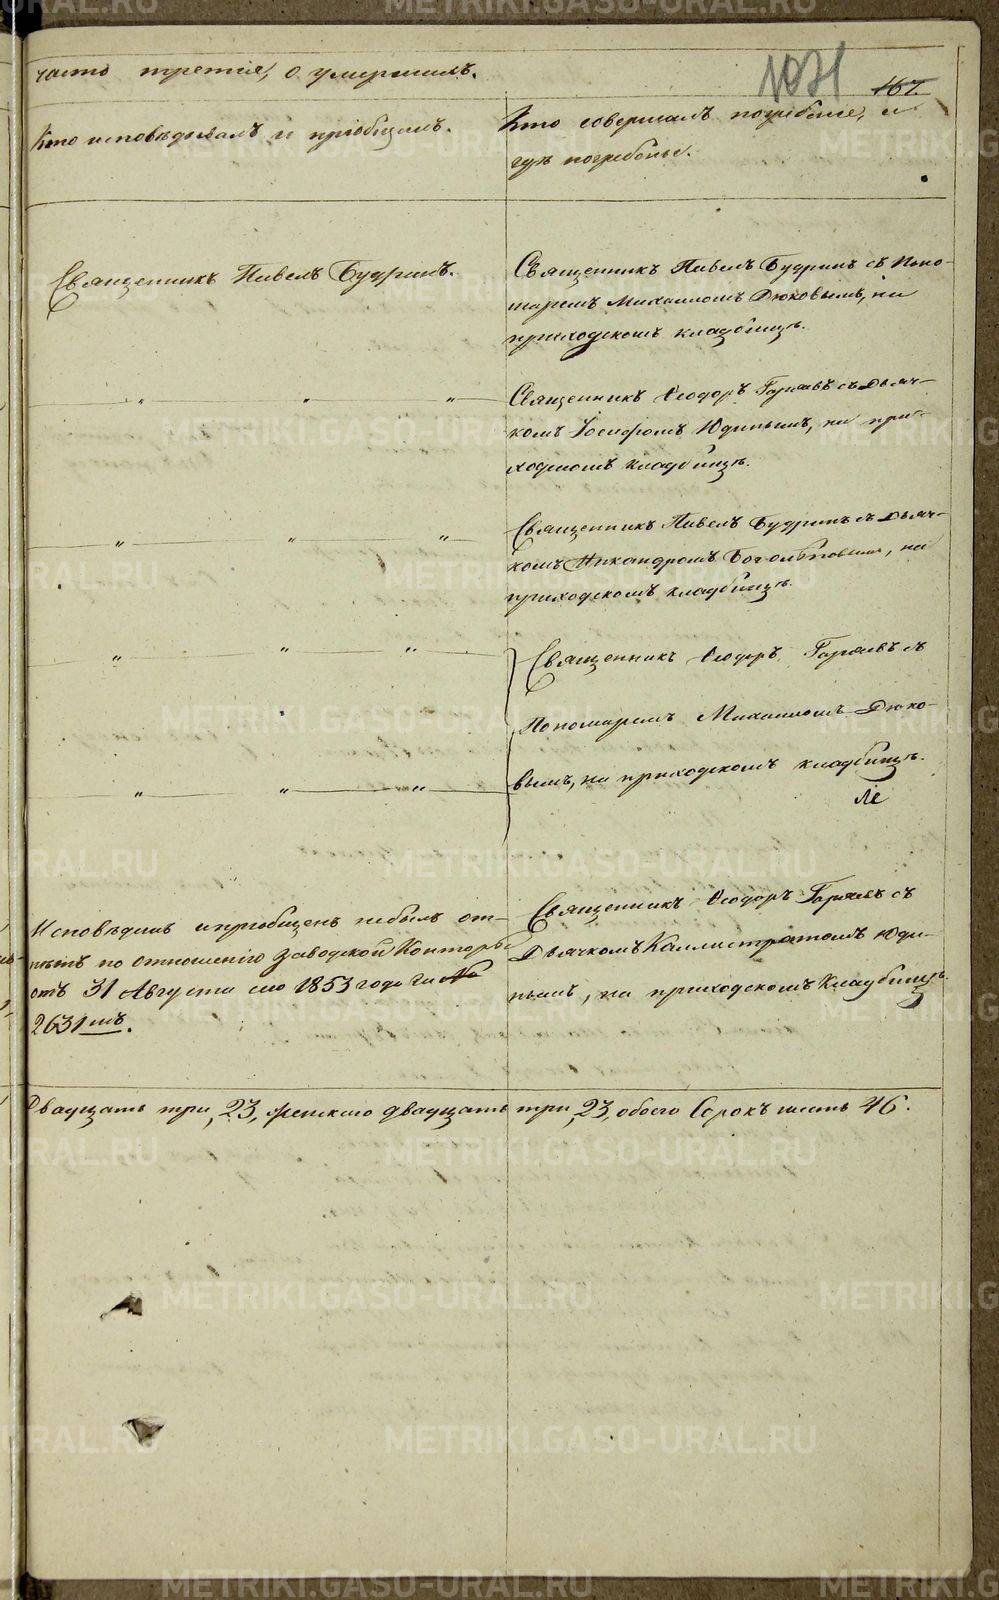 часть третія, о умершихъ.
1031
167.
Кто исповѣдывалъ и пріобщалъ.
Кто совершалъ погребеніе, и
гдѣ погребены.
Священникъ Павелъ Будринъ.
Священникъ Павелъ Будринъ съ Поно-
маремъ Михаиломъ Дюковымъ, на
приходскомъ кладбищѣ.
„ „ „
Священникъ Ѳеодоръ Гаряевъ съ Дьяч-
комъ Іосифомъ Юдинымъ, на при-
ходскомъ кладбищѣ.
„ „ „
Священникъ Павелъ Будринъ съ Дьяч-
комъ Никандромъ Боголѣповымъ, на
приходскомъ кладбищѣ.
„ „ „
Священникъ Ѳеодоръ Гаряевъ съ
Пономаремъ Михаиломъ Дюко-
вымъ, на приходскомъ кладбищѣ.
„ „ „
Исповѣданъ и пріобщенъ небылъ от-
пѣтъ по отношенію Заводской Конторы
отъ 31 Августа сего 1853 года за №
2631мъ.
Священникъ Ѳеодоръ Гаряевъ съ
Дьячкомъ Каллистратомъ Юди-
нымъ, на приходскомъ Кладбищѣ.
Двадцать три, 23, женскаго двадцать три, 23, обоего Сорокъ шесть 46.
METRIKI.GASO-URAL.RU